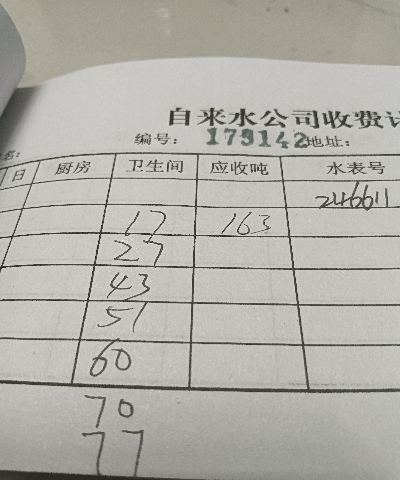 自来水公司收费
编号: 179142 地址:
名:
日 厨房 卫生间 应收吨 水表号
246611
17 163
27
43
51
60
70
77